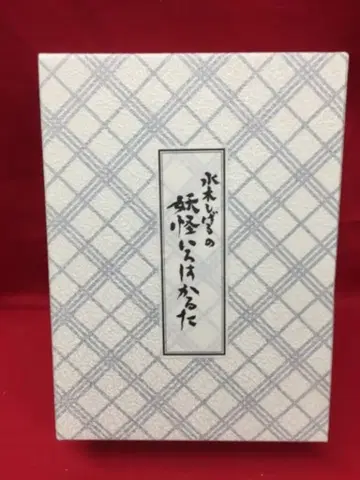 水木しげるの
妖怪いろはかるた